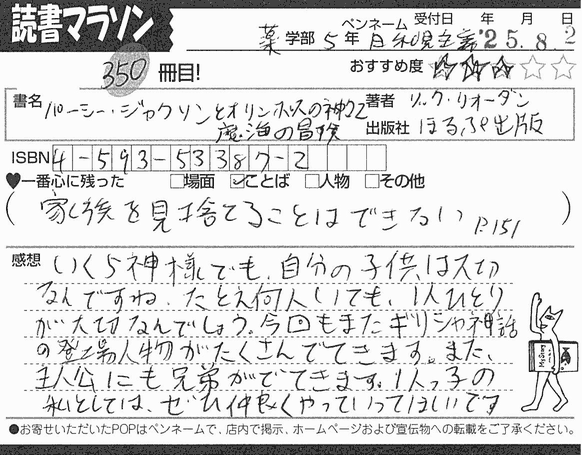 読書マラソン
ペンネーム 受付日 年 月 日
薬 学部 5 年 '25.8.2
350 冊目! おすすめ度 ☆☆☆☆☆
書名 パーシー・ジャクソンとオリンポスの神々2 著者 リック・リオーダン
魔海の冒険 出版社 ほるぷ出版
ISBN 4-593-53387-2
♥一番心に残った □場面 ☑ことば □人物 □その他
(家族を見捨てることはできない P.151)
感想 いくら神様でも、自分の子供は大切
なんですね。たとえ何人いても、1人ひとり
が大切なんでしょう。今回もまたギリシャ神話
の登場人物がたくさんでてきます。また、
主人公にも兄弟がでてきます。1人っ子の
私としては、ぜひ仲良くやっていってほしいです
●お寄せいただいたPOPはペンネームで、店内で掲示、ホームページおよび宣伝物への転載をご了承ください。